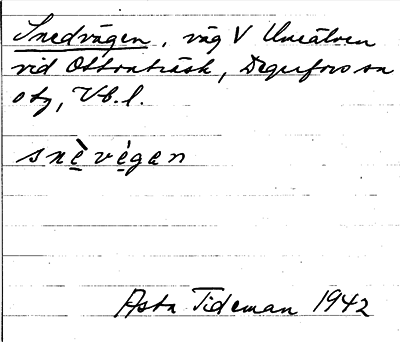 Snedvägen, väg V Umeälven
vid Ottonträsk, Degerfors sn
o tg, Vb. l.
snè̱vé̱gen
Asta Tideman 1942